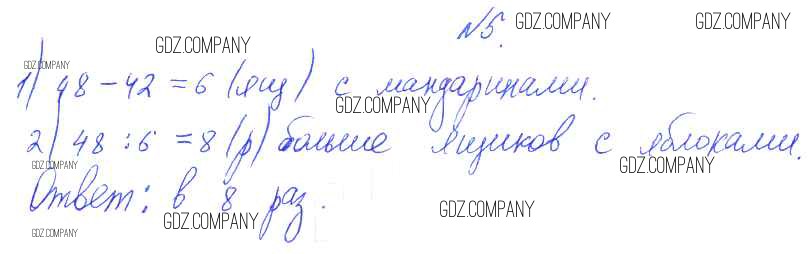 №5.
GDZ.COMPANY GDZ.COMPANY
GDZ.COMPANY
GDZ.COMPANY
1) 48 - 42 = 6 (ящ) с мандаринами.
GDZ.COMPANY
2) 48 : 6 = 8 (р) больше ящиков с яблоками.
GDZ.COMPANY GDZ.COMPANY
Ответ: в 8 раз.
GDZ.COMPANY GDZ.COMPANY
GDZ.COMPANY